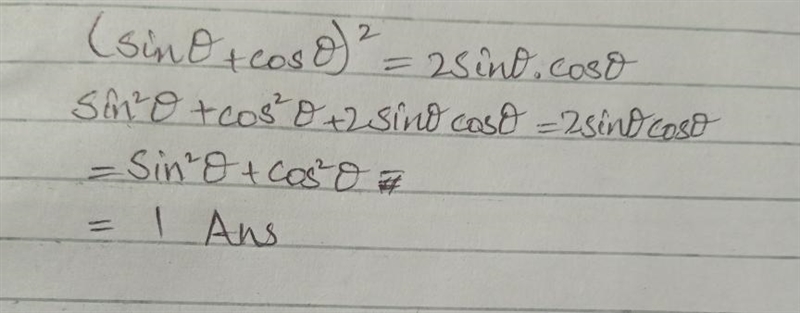 (sinθ+cosθ)² = 2sinθ.cosθ
sin²θ+cos²θ+2sinθcosθ=2sinθcosθ
=Sin²θ+cos²θ
= 1 Ans